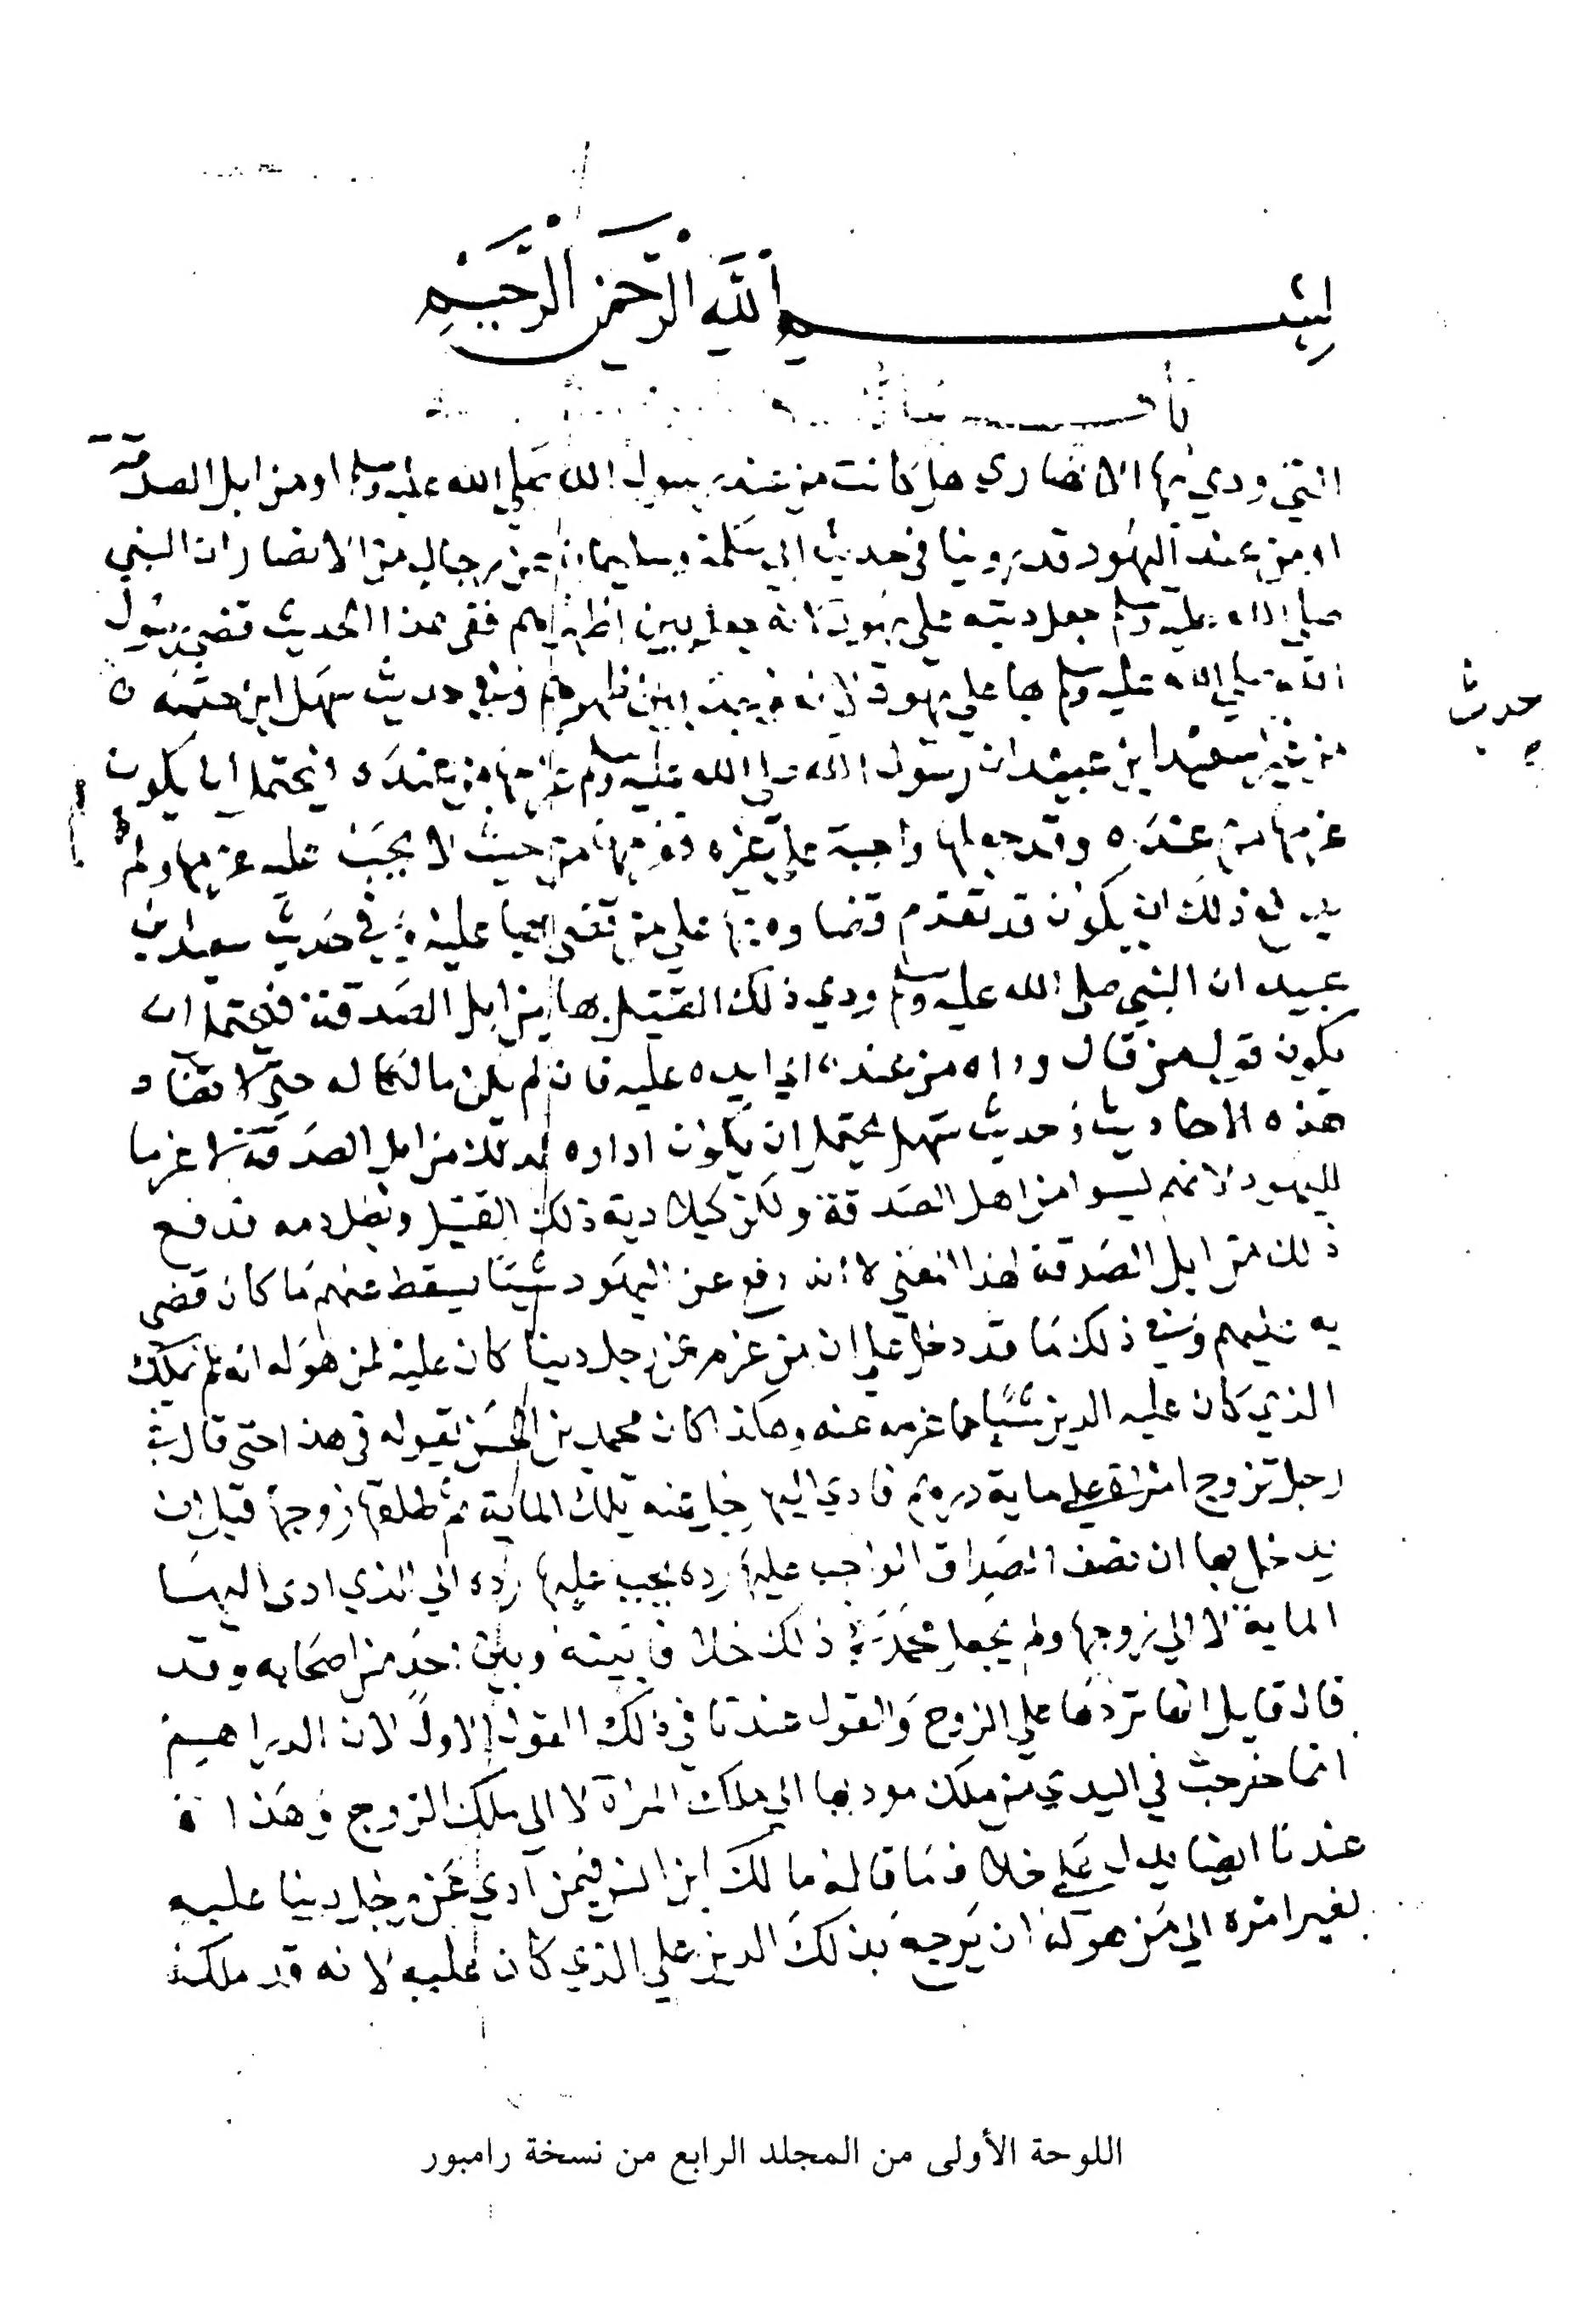 بسم الله الرحمن الرحيم
التي ودي بها الانصاري هل كانت من عند رسول الله صلى الله عليه وسلم او من ابل الصدقة
او من عند اليهود قد روينا في حديث ابي سلمة وسليمان عن رجال من الانصار ان النبي
صلى الله عليه وسلم جعل ديته على يهود لانه وجد بين اظهرهم ففي هذا الحديث قضى رسول
الله صلى الله عليه وسلم بها على يهود لانه وجد بين ظهرهم وفي حديث سهل ابن حثمة
حديث
سعيد ابن عبيد ان رسول الله صلى الله عليه وسلم غرمها من عنده فيحتمل ان يكون
غرمها من عنده وقد جعلها واجبة على غيره فغرمها من حيث لا يجب عليه غرمها ولم
يدفع ذلك ان يكون قد تقدم قضاوه بها على من قضى بها عليه وفي حديث سعيد بن
عبيد ان النبي صلى الله عليه وسلم ودي ذلك القتيل بها من ابل الصدقة فيحتمل ان
يكون قول من قال وداه من عنده اي ايده عليه فان لم يكن مالكا له حتى لا تضاد
هذه الاحاديث وحديث سهل يحتمل ان يكون اداوه لذلك من ابل الصدقة لا غرما
لليهود لانهم ليسوا من اهل الصدقة ولكن كيلا دية ذلك القتيل وبطل دمه فدفع
ذلك من ابل الصدقة لهذا المعنى لا انه دفع عن اليهود شيئا يسقط عنهم ما كان قضى
به عليهم وفي ذلك ما قد دخل على ان من غرم عن رجل دينا كان عليه لمن هو له انه لم يملك
الذي كان عليه الدين شيئا مما غرمه عنه وهكذا كان محمد بن الحسن يقوله في هذا حتى قال في
رجل تزوج امراة على ماية درهم فادى اليها رجل عنه تلك الماية ثم طلقها زوجها قبل ان
يدخل بها ان نصف الصداق الواجب عليها رده يجب عليها رده الى الذي ادى اليها
الماية لا الى زوجها ولم يجعل محمد في ذلك خلافا بينه وبين احد من اصحابه وقد
قال قايل انما تردها على الزوج والقول عندنا في ذلك القول الاول لان الدراهم
انما خرجت في البدي من ملك موديها الى ملك المراة لا الى ملك الزوج وهذا
عندنا ايضا يدل على خلاف ما قاله مالك ابن انس فيمن ادى عن رجل دينا عليه
بغير امره الى من هو له ان يرجع بذلك الدين على الذي كان عليه لانه قد ملكه
اللوحة الأولى من المجلد الرابع من نسخة رامبور